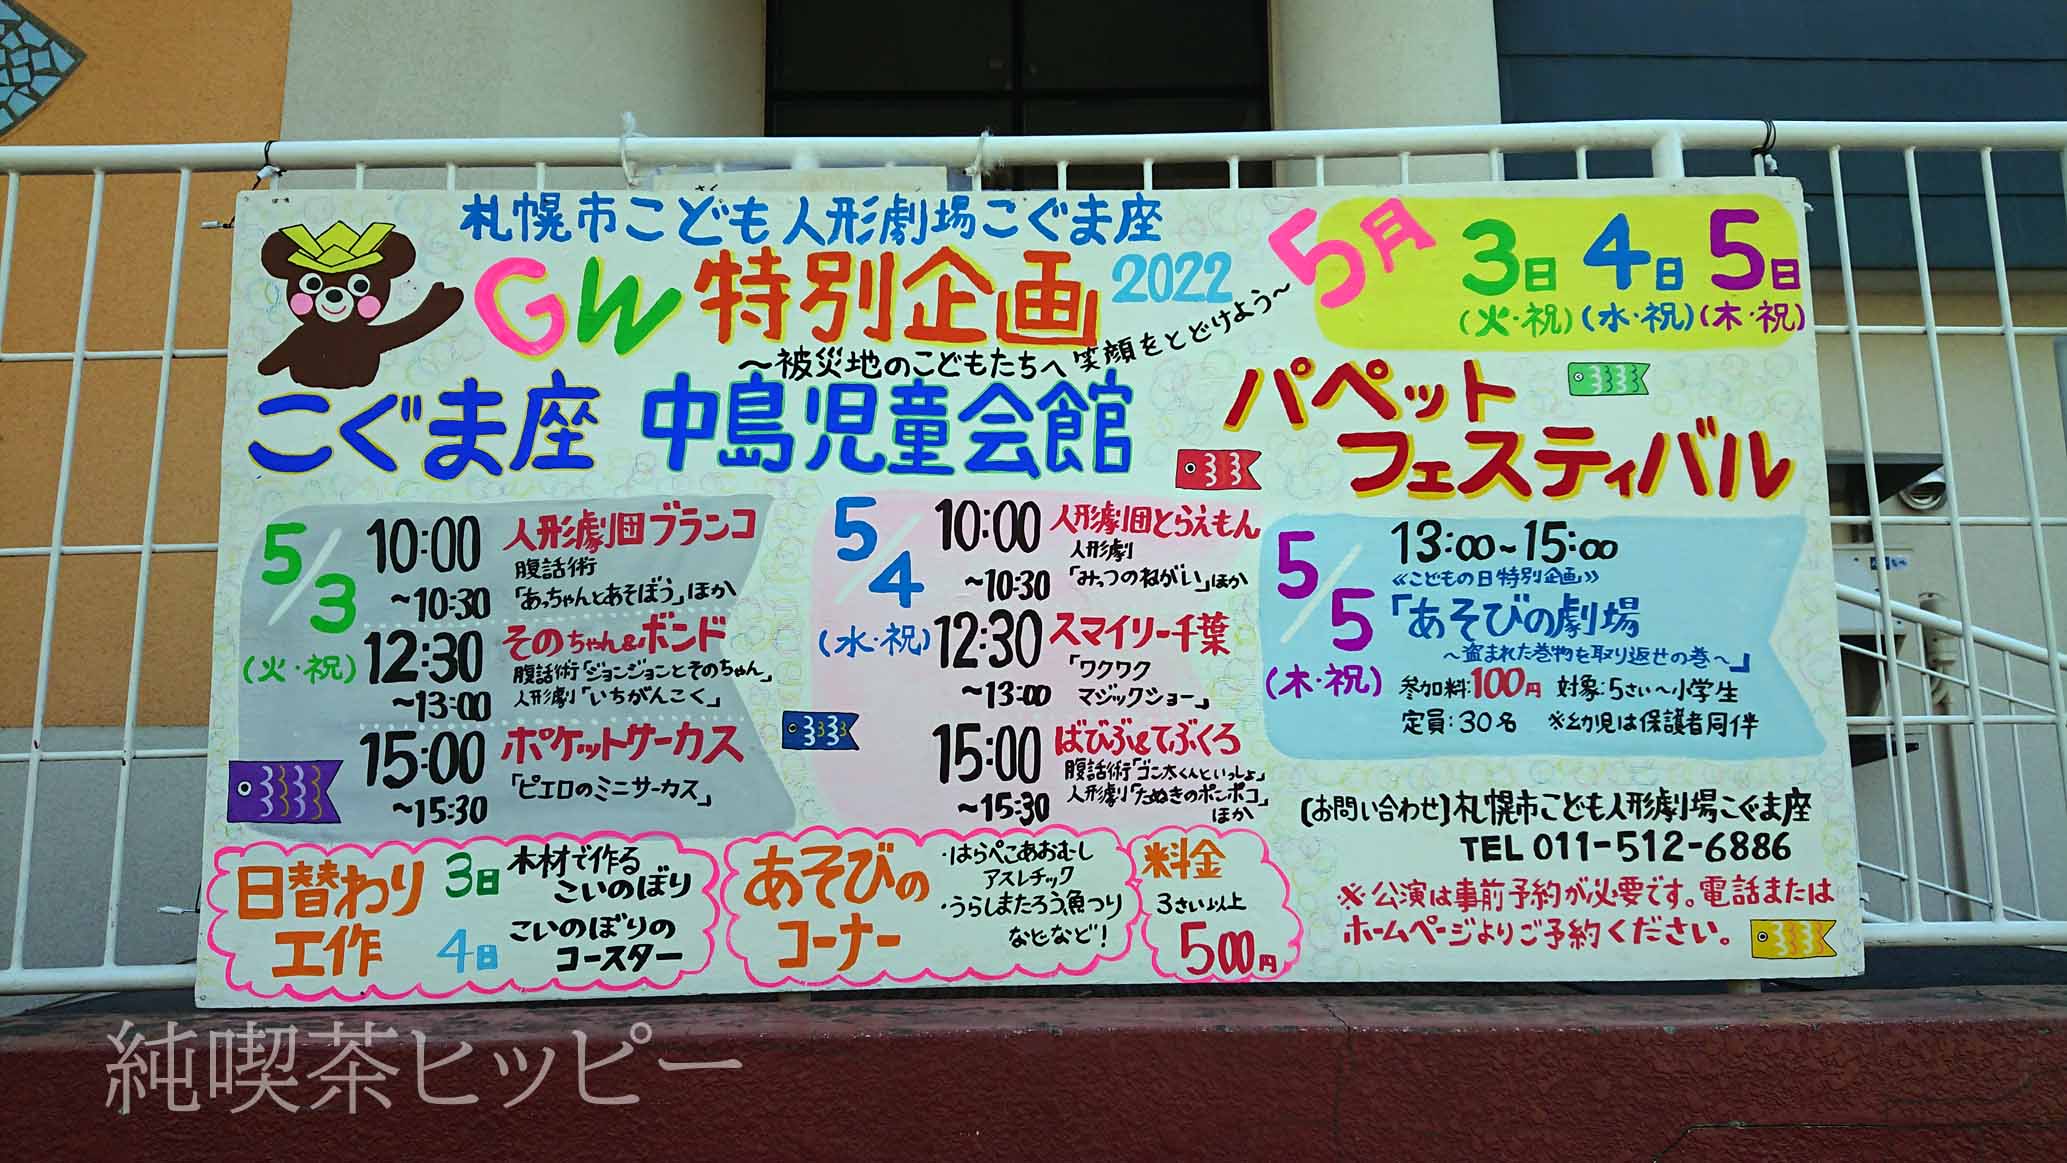 札幌市こども人形劇場こぐま座
GW特別企画2022
～被災地のこどもたちへ笑顔をとどけよう～
5月 3日 4日 5日
(火・祝) (水・祝) (木・祝)
こぐま座 中島児童会館
パペット
フェスティバル
5/3
(火・祝)
10:00
～10:30
人形劇団ブランコ
腹話術
「あっちゃんとあそぼう」ほか
12:30
～13:00
そのちゃん&ボンド
腹話術「ジョンジョンとそのちゃん」
人形劇「いちがんこく」
15:00
～15:30
ポケットサーカス
「ピエロのミニサーカス」
5/4
(水・祝)
10:00
～10:30
人形劇団とらえもん
人形劇
「みっつのねがい」ほか
12:30
～13:00
スマイリー千葉
「ワクワク
マジックショー」
15:00
～15:30
ばびぶ&てぶくろ
腹話術「ゴン太くんといっしょ」
人形劇「たぬきのポンポコ」
ほか
5/5
(木・祝)
13:00～15:00
《こどもの日特別企画》
「あそびの劇場
～盗まれた巻物を取り返せの巻～」
参加料:100円 対象:5さい～小学生
定員:30名 ※幼児は保護者同伴
日替わり
工作
3日 木材で作る
こいのぼり
4日 こいのぼりの
コースター
あそびの
コーナー
・はらぺこあおむし
アスレチック
・うらしまたろう魚つり
などなど!
料金
3さい以上
500円
[お問い合わせ]札幌市こども人形劇場こぐま座
TEL 011-512-6886
※公演は事前予約が必要です。電話または
ホームページよりご予約ください。
純喫茶ヒッピー